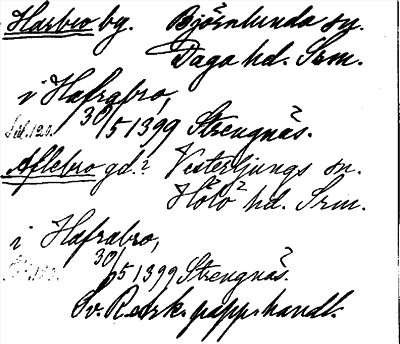 Harbro bg. Björnlunda sn.
Daga hd. Srm.
i Hafrabro,
30/5 1399 Strengnäs.
Aflebro gd.? Vesterljungs sn.
Hölö hd. Srm.
i Hafrabro,
30/5 1399 Strengnäs.
Sv. Reark. papp. handl.